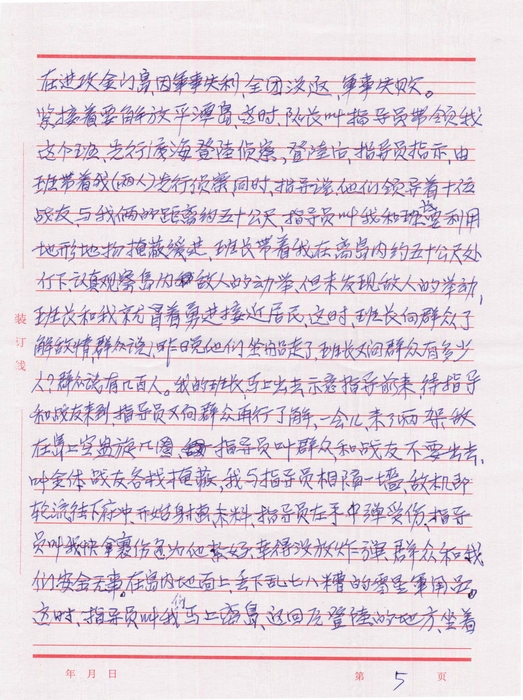 在进攻金门岛因军事失利,全团没返,军事失败。
紧接着要解放平潭岛,这时,队长叫指导员带领我
这个班,先行渡海登陆侦察,登陆后,指导员指示,由
班带着我(两人)先行侦察,同时,指导说他们领导着十位
战友,与我俩的距离约五十公尺,指导员叫我和班长利用
地形地物掩蔽缓进,班长带着我在离岛内约五十公尺处
停下,认真观察岛内敌人的动举,但未发现敌人的举动,
班长和我就冒着勇进接近居民,这时,班长向群众了
解敌情,群众说,昨日晚他们坐船走了,班长又问群众有多少
人?群众说有几百人。我的班长马上出去示意指导前来,待指导
和战友来到,指导员又向群众再行了解,一会儿来了两架敌
在岛上空盘旋几圈,指导员叫群众和战友不要出去,
叫全体战友各找掩蔽,我与指导员相隔一墙,敌机即
轮流往下俯冲,开始射击,未料,指导员左手中弹受伤,指导
员叫我快拿裹伤包为他紥好,幸得没放炸弹,群众和我
们安全无事,在岛内地面上,丢下乱七八糟的零星军用品。
这时,指导员叫我们马上离岛,返回原登陆的地方,坐着
装订线
年 月 日
第 5 页